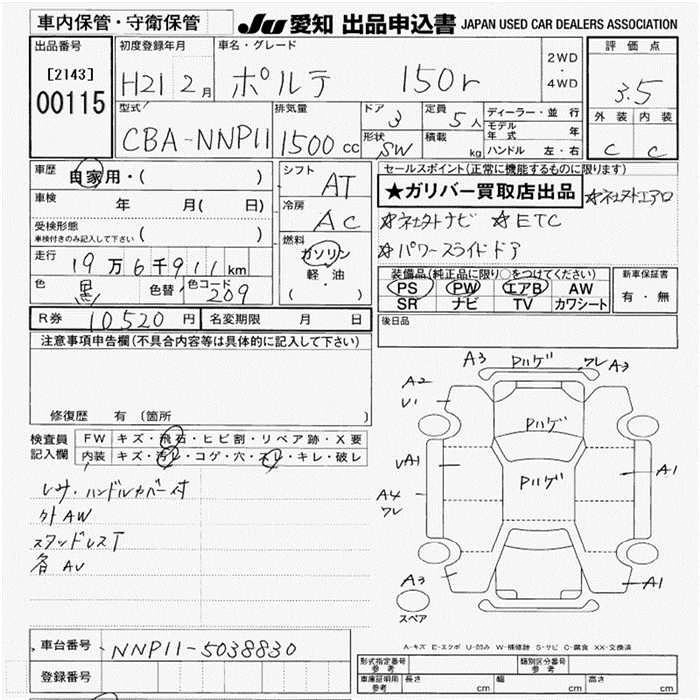 車内保管・守衛保管 JU 愛知 出品申込書 JAPAN USED CAR DEALERS ASSOCIATION
出品番号 初度登録年月 車名・グレード 評価点
[2143] H21 2月 ポルテ 150r 2WD・4WD 3.5
00115 型式 排気量 ドア 3 定員 5人 ディーラー・並行 外装 内装
CBA-NNP11 1500cc 形状 SW 積載 kg モデル年式 年 C C
ハンドル 左・右
車歴 自家用・( ) シフト AT セールスポイント(正常に機能するものに限ります)
★ガリバー買取店出品
車検 年 月( 日) 冷房 AC
☆ETC
受検形態 ( )
車検付きのみ記入して下さい
燃料 ガソリン 軽・油 ( ・ )
☆パワースライドドア
走行 19万6千911km
装備品(純正品に限り○をつけてください) 新車保証書
色 黒 色替 色コード 209
PS PW エアB AW 有・無
SR ナビ TV カワシート
R券 10520円 名変期限 月 日 後日品
注意事項申告欄(不具合内容等は具体的に記入して下さい)
修復歴 有 (箇所 )
検査員記入欄 FW キズ・飛石・ヒビ割・リペア跡・X要
内装 キズ・汚レ・コゲ・穴・スレ・キレ・破レ
ハンドルカバー付
外AW
スタッドレスT
各AU
A3 Pハゲ ワレ A3
A2
U1
Pハゲ
UA1 A1
Pハゲ
A4
ワレ
A3 A1
スペア
A-キズ E-エクボ U-凹み W-補修跡 S-サビ C-腐食 XX-交換済
車台番号 NNP11-5038830
登録番号
型式指定番号 参考 類別区分番号 参考
車庫証明用 参考 長さ cm 幅 cm 高さ cm